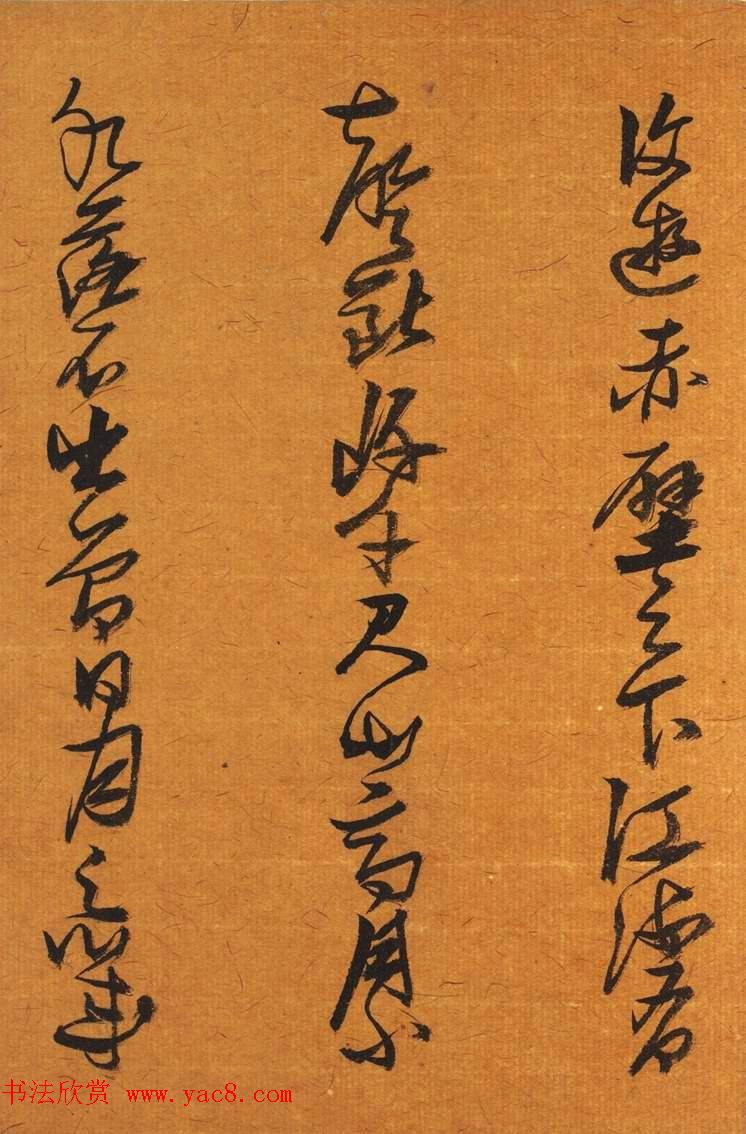 復遊赤壁之下江流有
聲斷岸千尺山高月小
水落石出曾日月之幾
书法欣赏 www.yac8.com